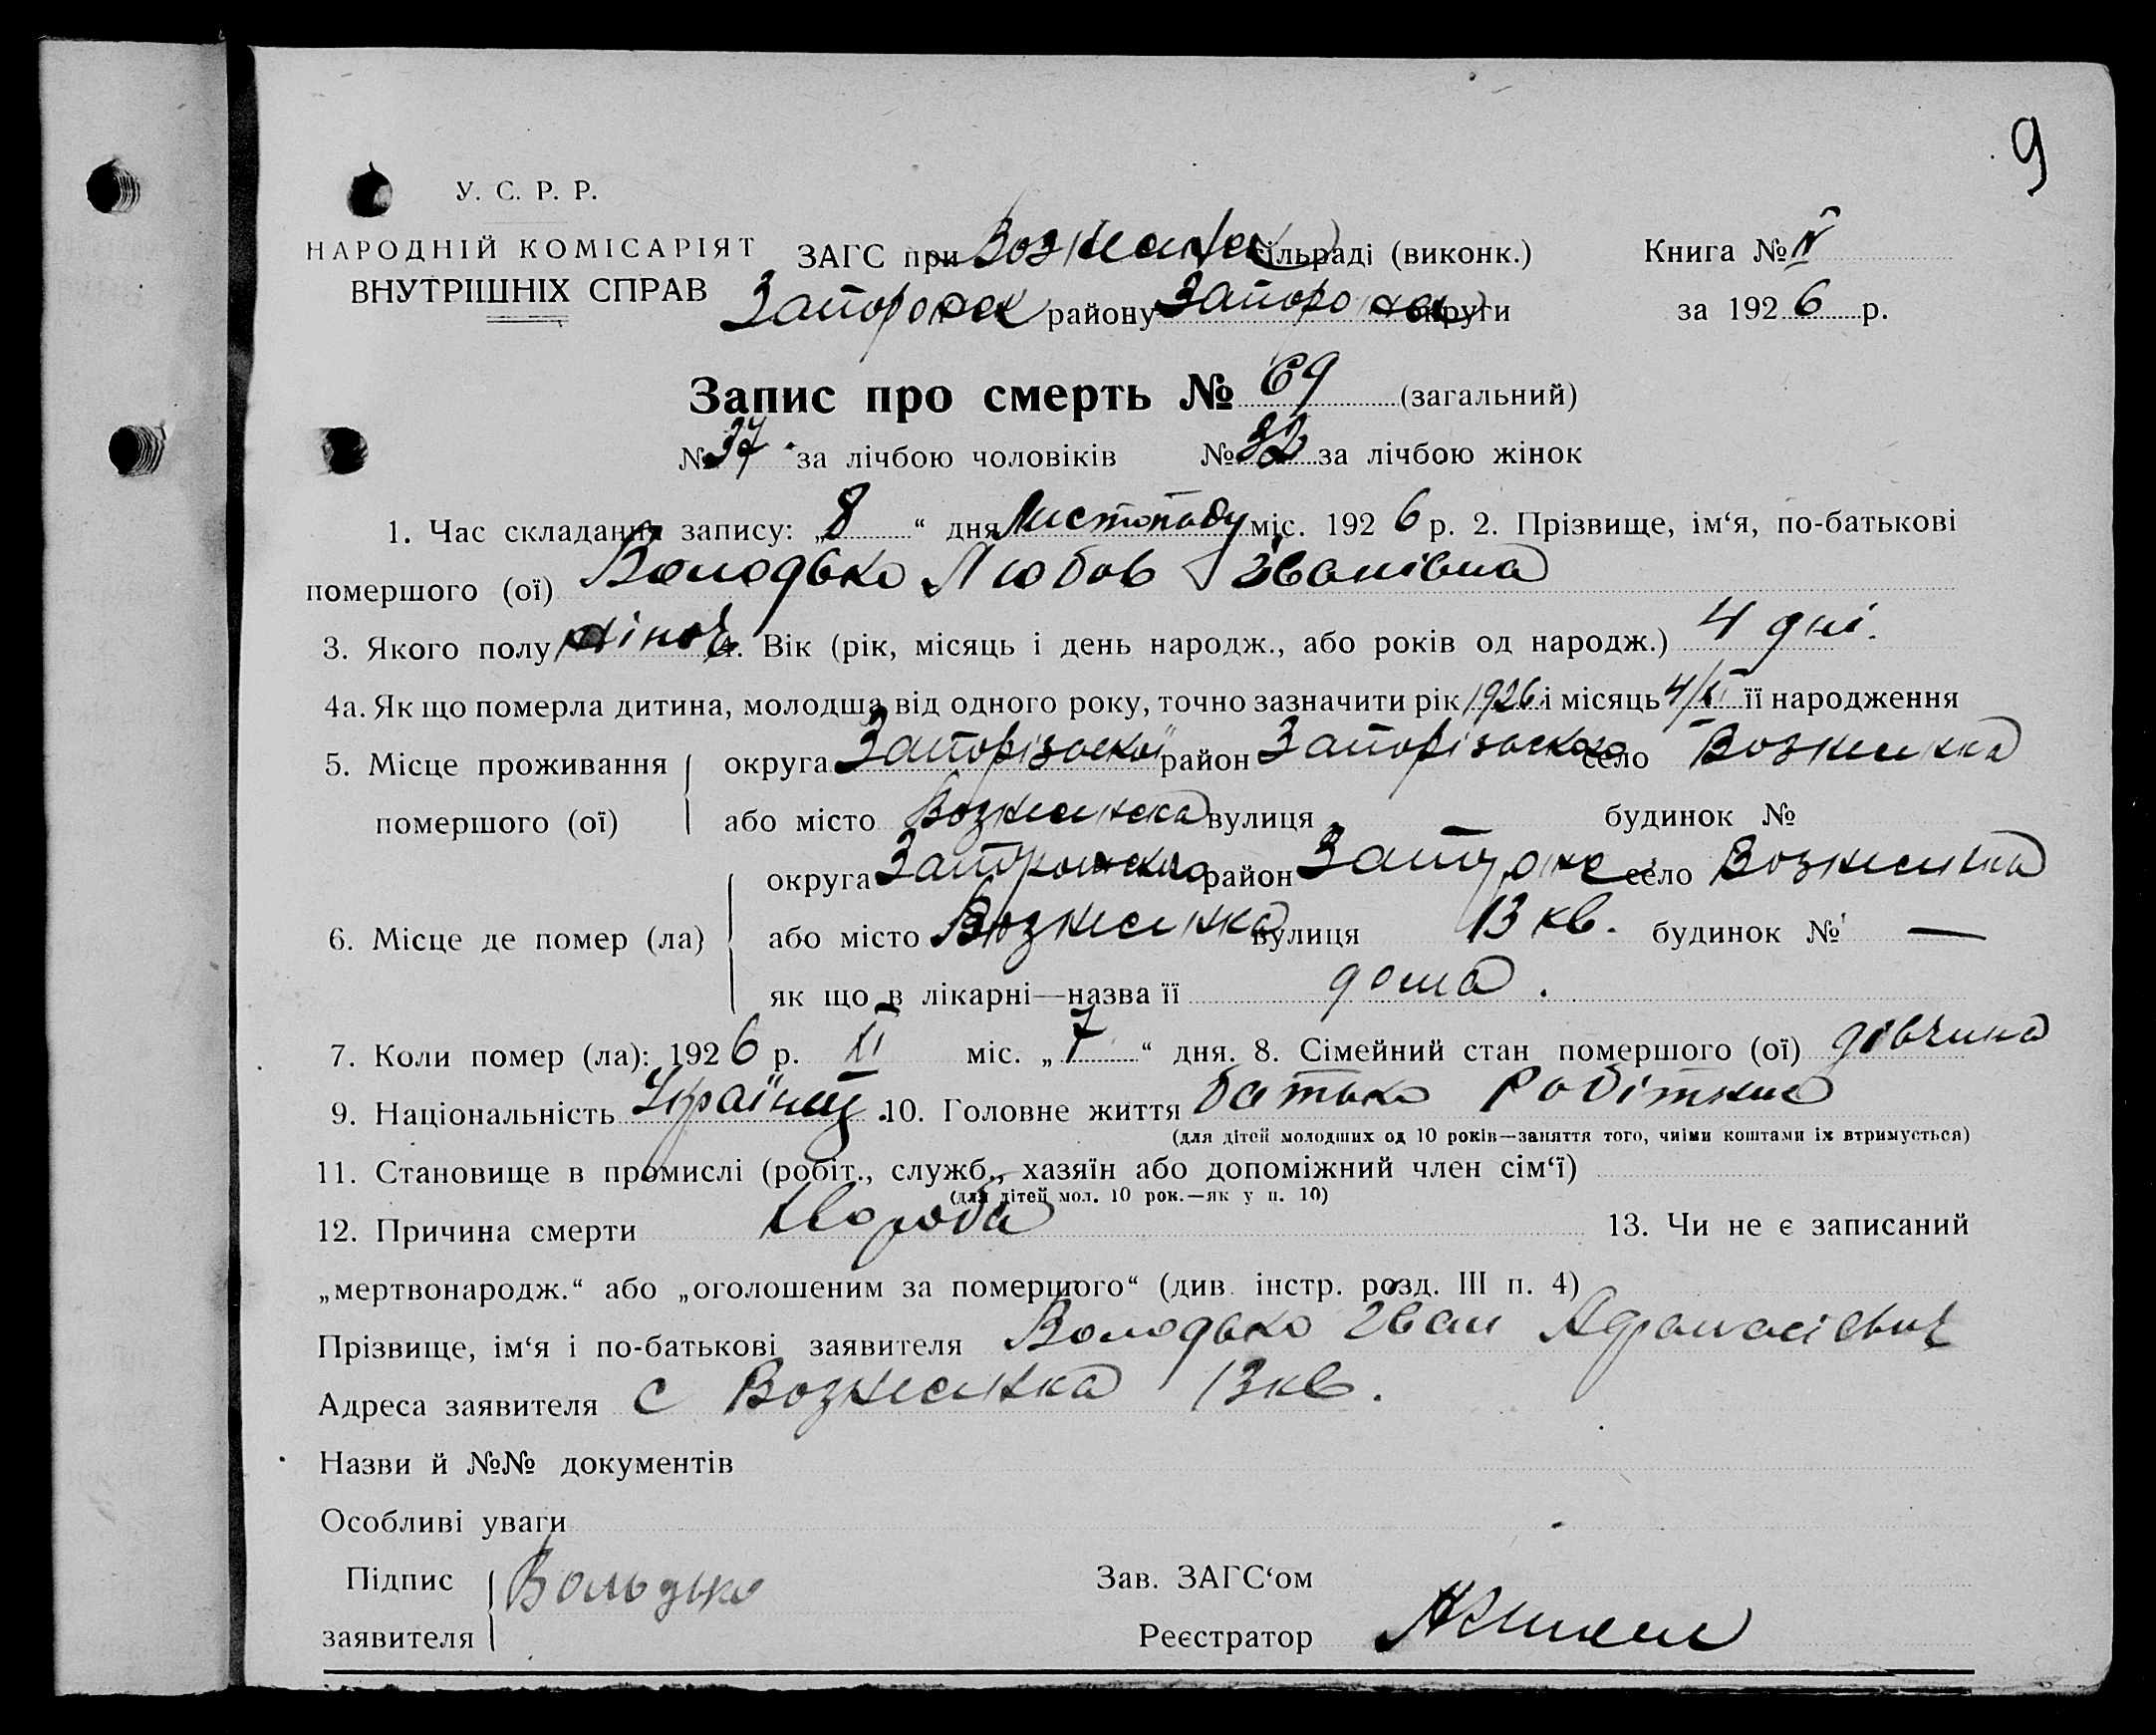 9
У. С. Р. Р.
НАРОДНІЙ КОМІСАРІЯТ
ВНУТРІШНІХ СПРАВ
ЗАГС при сільраді (виконк.) Книга №
Запорожск району Запорожск округи за 1926 р.
Запис про смерть № 69 (загальний)
№ 37 за лічбою чоловіків № 32 за лічбою жінок
1. Час складання запису: „8“ дня Листопаду міс. 1926 р. 2. Прізвище, ім‘я, по-батькові
помершого (ої) Володько Любов Іванівна
3. Якого полу жіноч 4. Вік (рік, місяць і день народж., або років од народж.) 4 дні.
4а. Як що померла дитина, молодша від одного року, точно зазначити рік 1926 і місяць 4/XI її народження
5. Місце проживання помершого (ої) округа Запорізької район Запорізького село Вознесенка
або місто Вознесенка вулиця будинок №
6. Місце де помер (ла) округа район село Вознесенка
або місто Вознесенка вулиця 13 кв. будинок № —
як що в лікарні—назва її дома.
7. Коли помер (ла): 1926 р. XI міс. „7“ дня. 8. Сімейний стан помершого (ої) дівчина
9. Національність 10. Головне життя батько робітник
(для дітей молодших од 10 років—заняття того, чиїми коштами їх втримується)
11. Становище в промислі (робіт., служб., хазяїн або допоміжний член сім‘ї)
(для дітей мол. 10 рок.—як у п. 10)
12. Причина смерти Хвороба 13. Чи не є записаний
„мертвонародж.“ або „оголошеним за помершого“ (див. інстр. розд. III п. 4)
Прізвище, ім‘я і по-батькові заявителя Володько Іван Афанасієвич
Адреса заявителя с Вознесенка 13 кв.
Назви й №№ документів
Особливі уваги
Підпис заявителя Володько
Зав. ЗАГС‘ом
Реєстратор